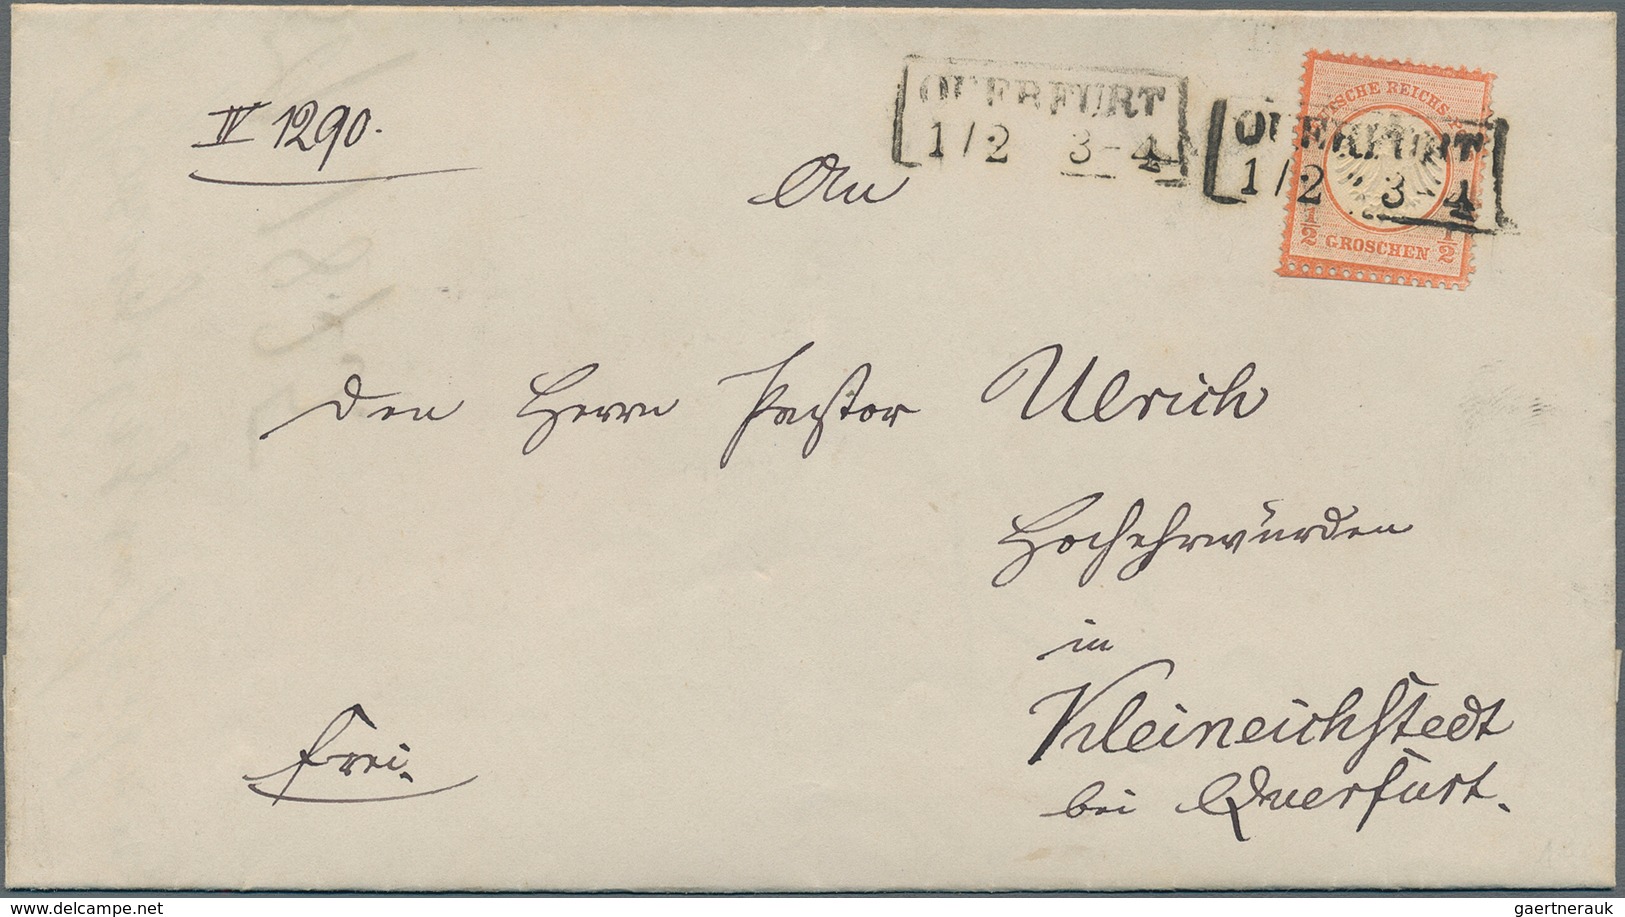 IV 1290.
QUERFURT
1/2 3-4
QUERFURT
1/2 3-4
SCHE REICHS
1/2 GROSCHEN 1/2
An
den Herrn Pastor Ulrich
Hochehrwürden
in
Kleineichstedt
bei Querfurt.
frei.
delcampe.net
gaertnerauk